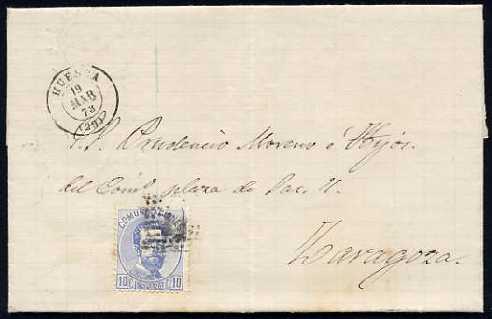 HUESCA
19
MAR
73
(29)
S.S. Prudencio Moreno é Hijos.
del Comº plaza de
Zaragoza.
COMUN
10C. ESPAÑA 10